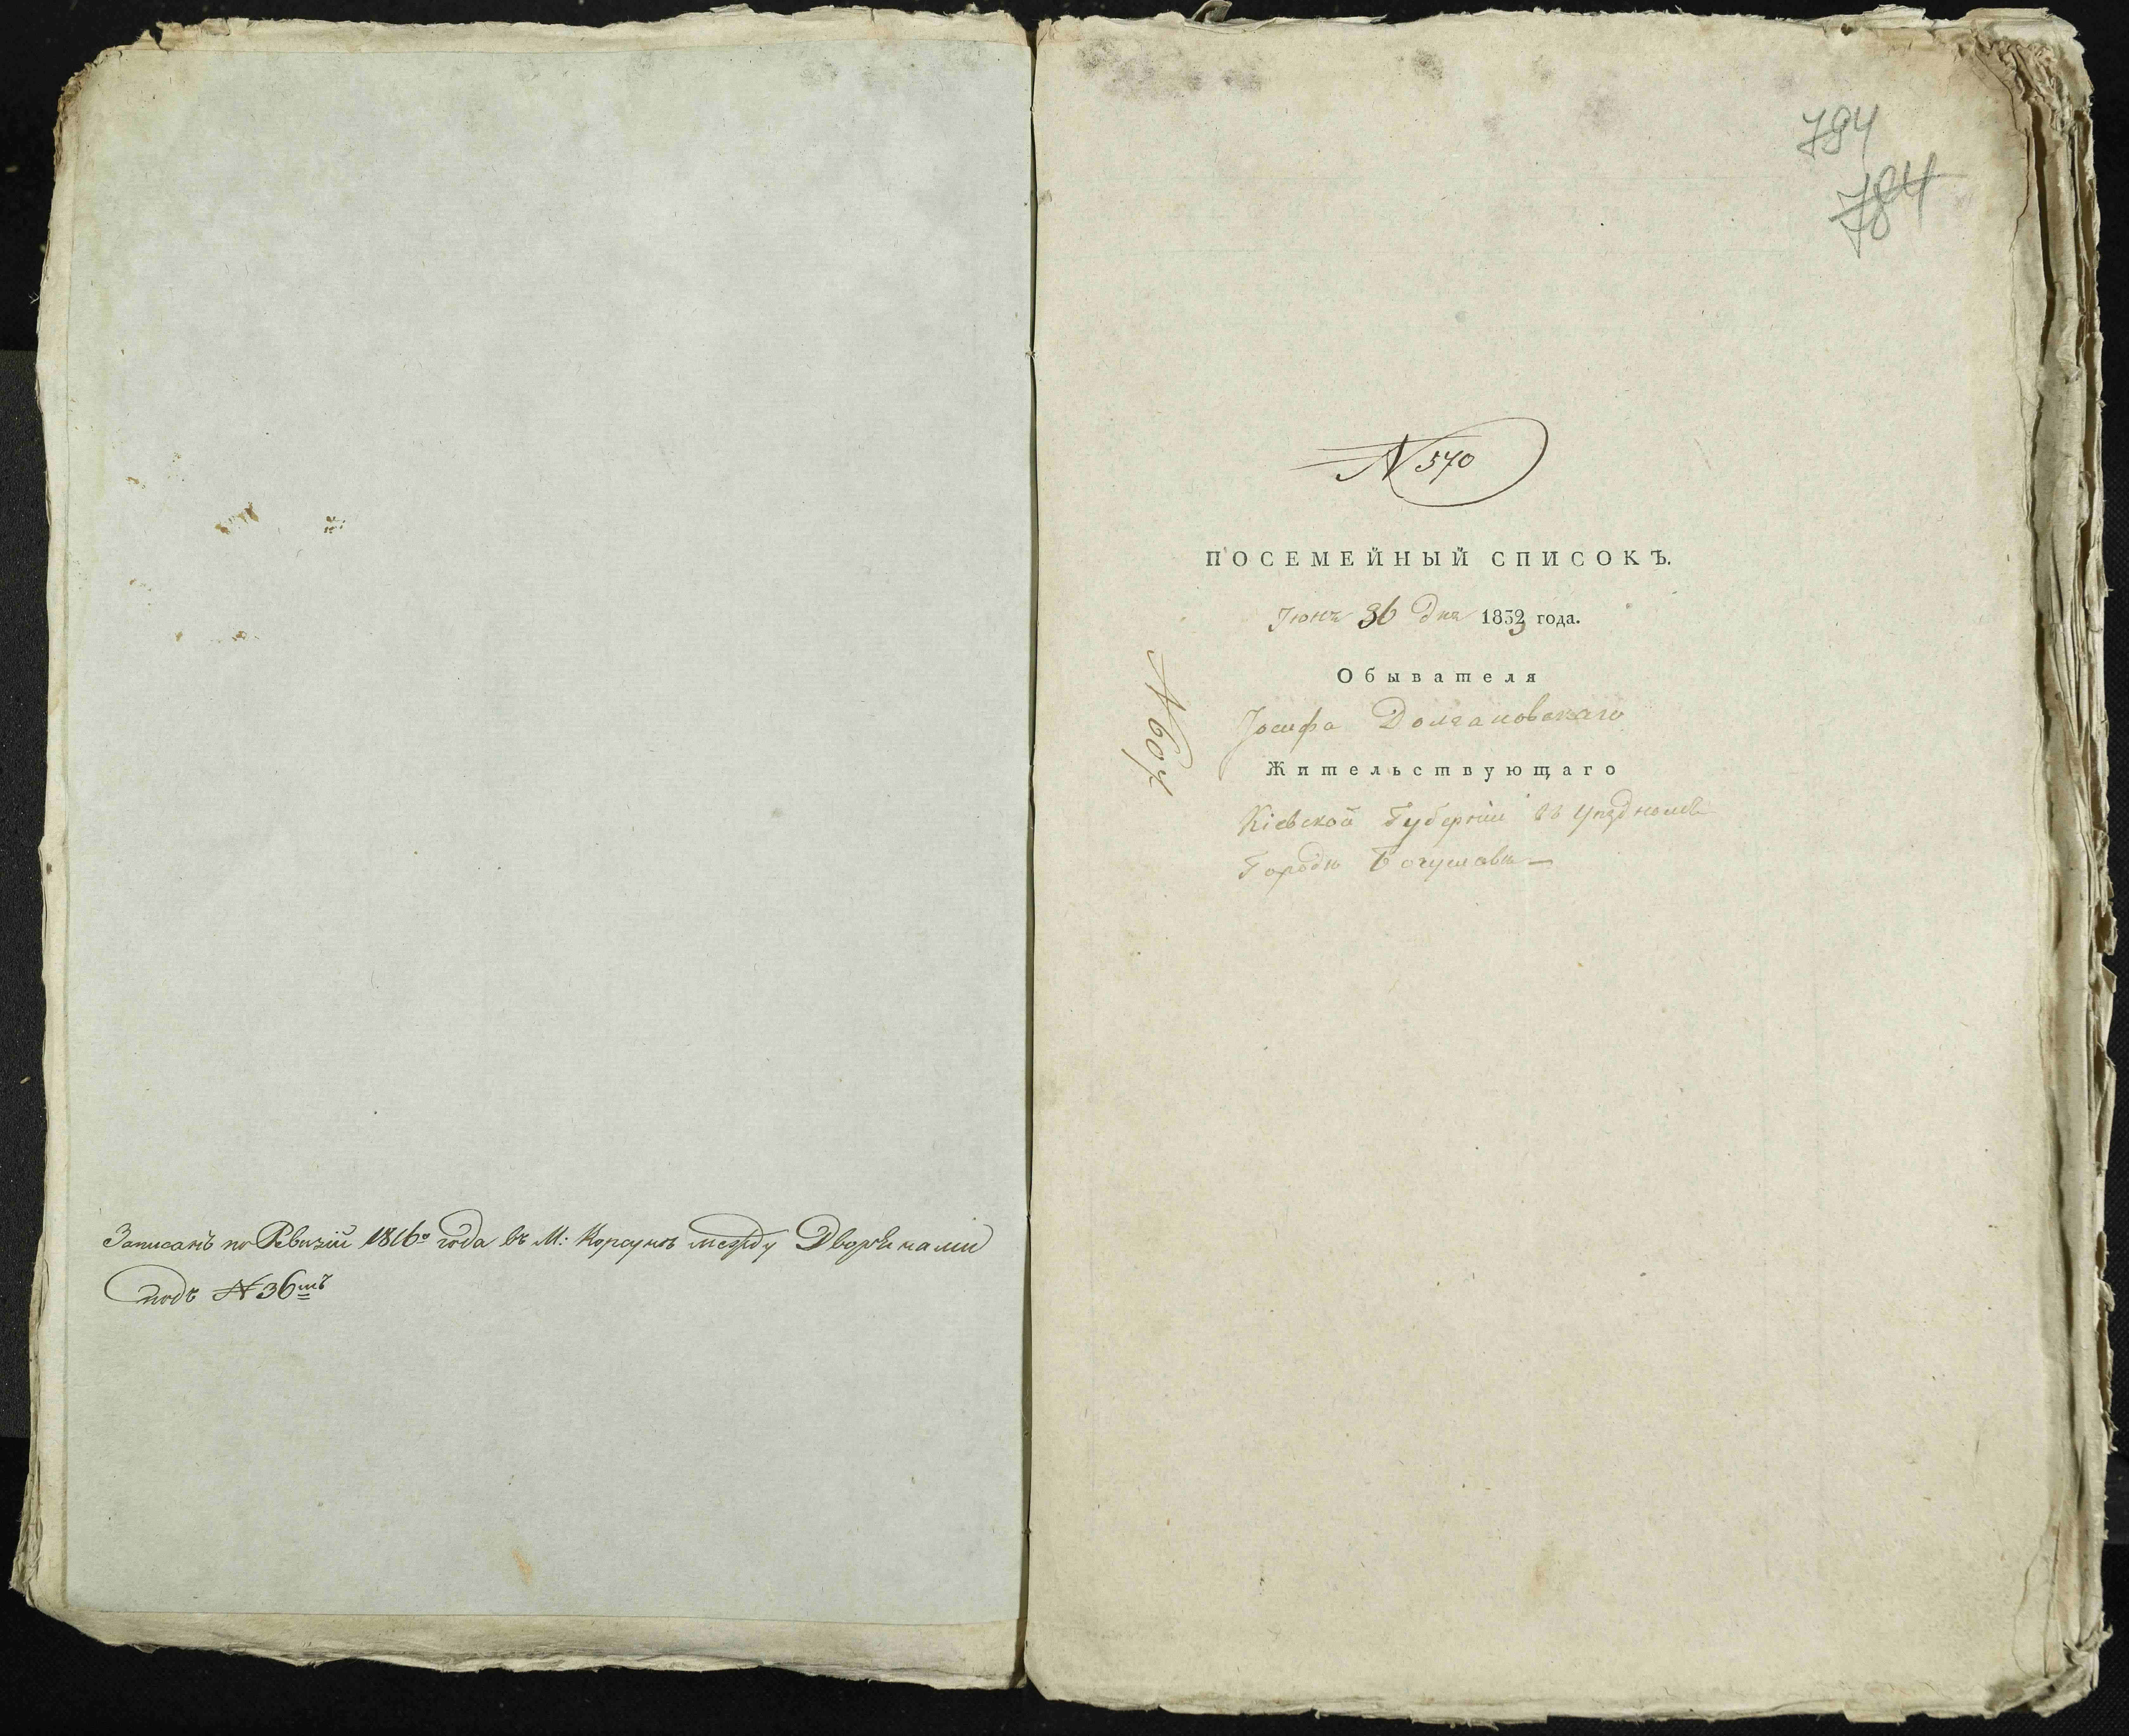 Записанъ по Ревизіи 1816го года въ М: Корсунѣ между Дворянами
подъ № 36мъ
784
784
№ 570
ПОСЕМЕЙНЫЙ СПИСОКЪ.
Іюня 30 дня 1833 года.
Обывателя
№ 607
Іосифа Долгановскаго
Жительствующаго
Кіевской Губерніи въ Уѣздномъ
Городѣ Богуславѣ —